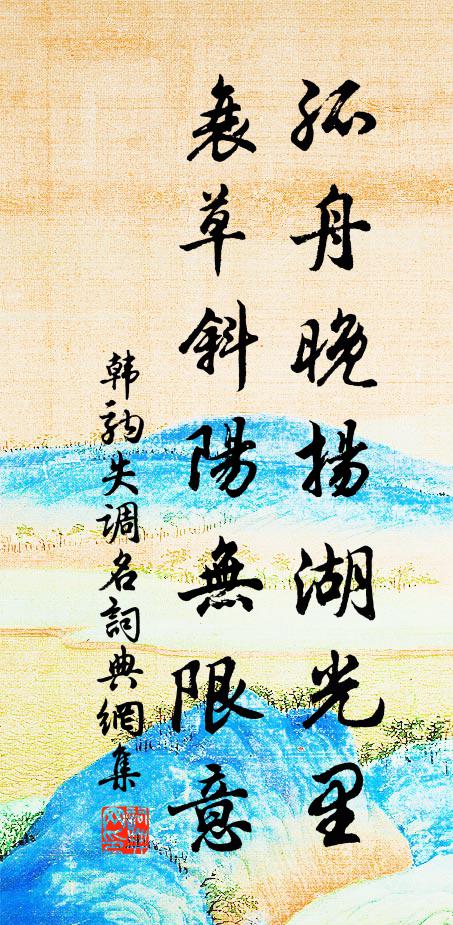 孤舟晚揚湖光里
衰草斜陽無限意
韩駒失调名詞典網集